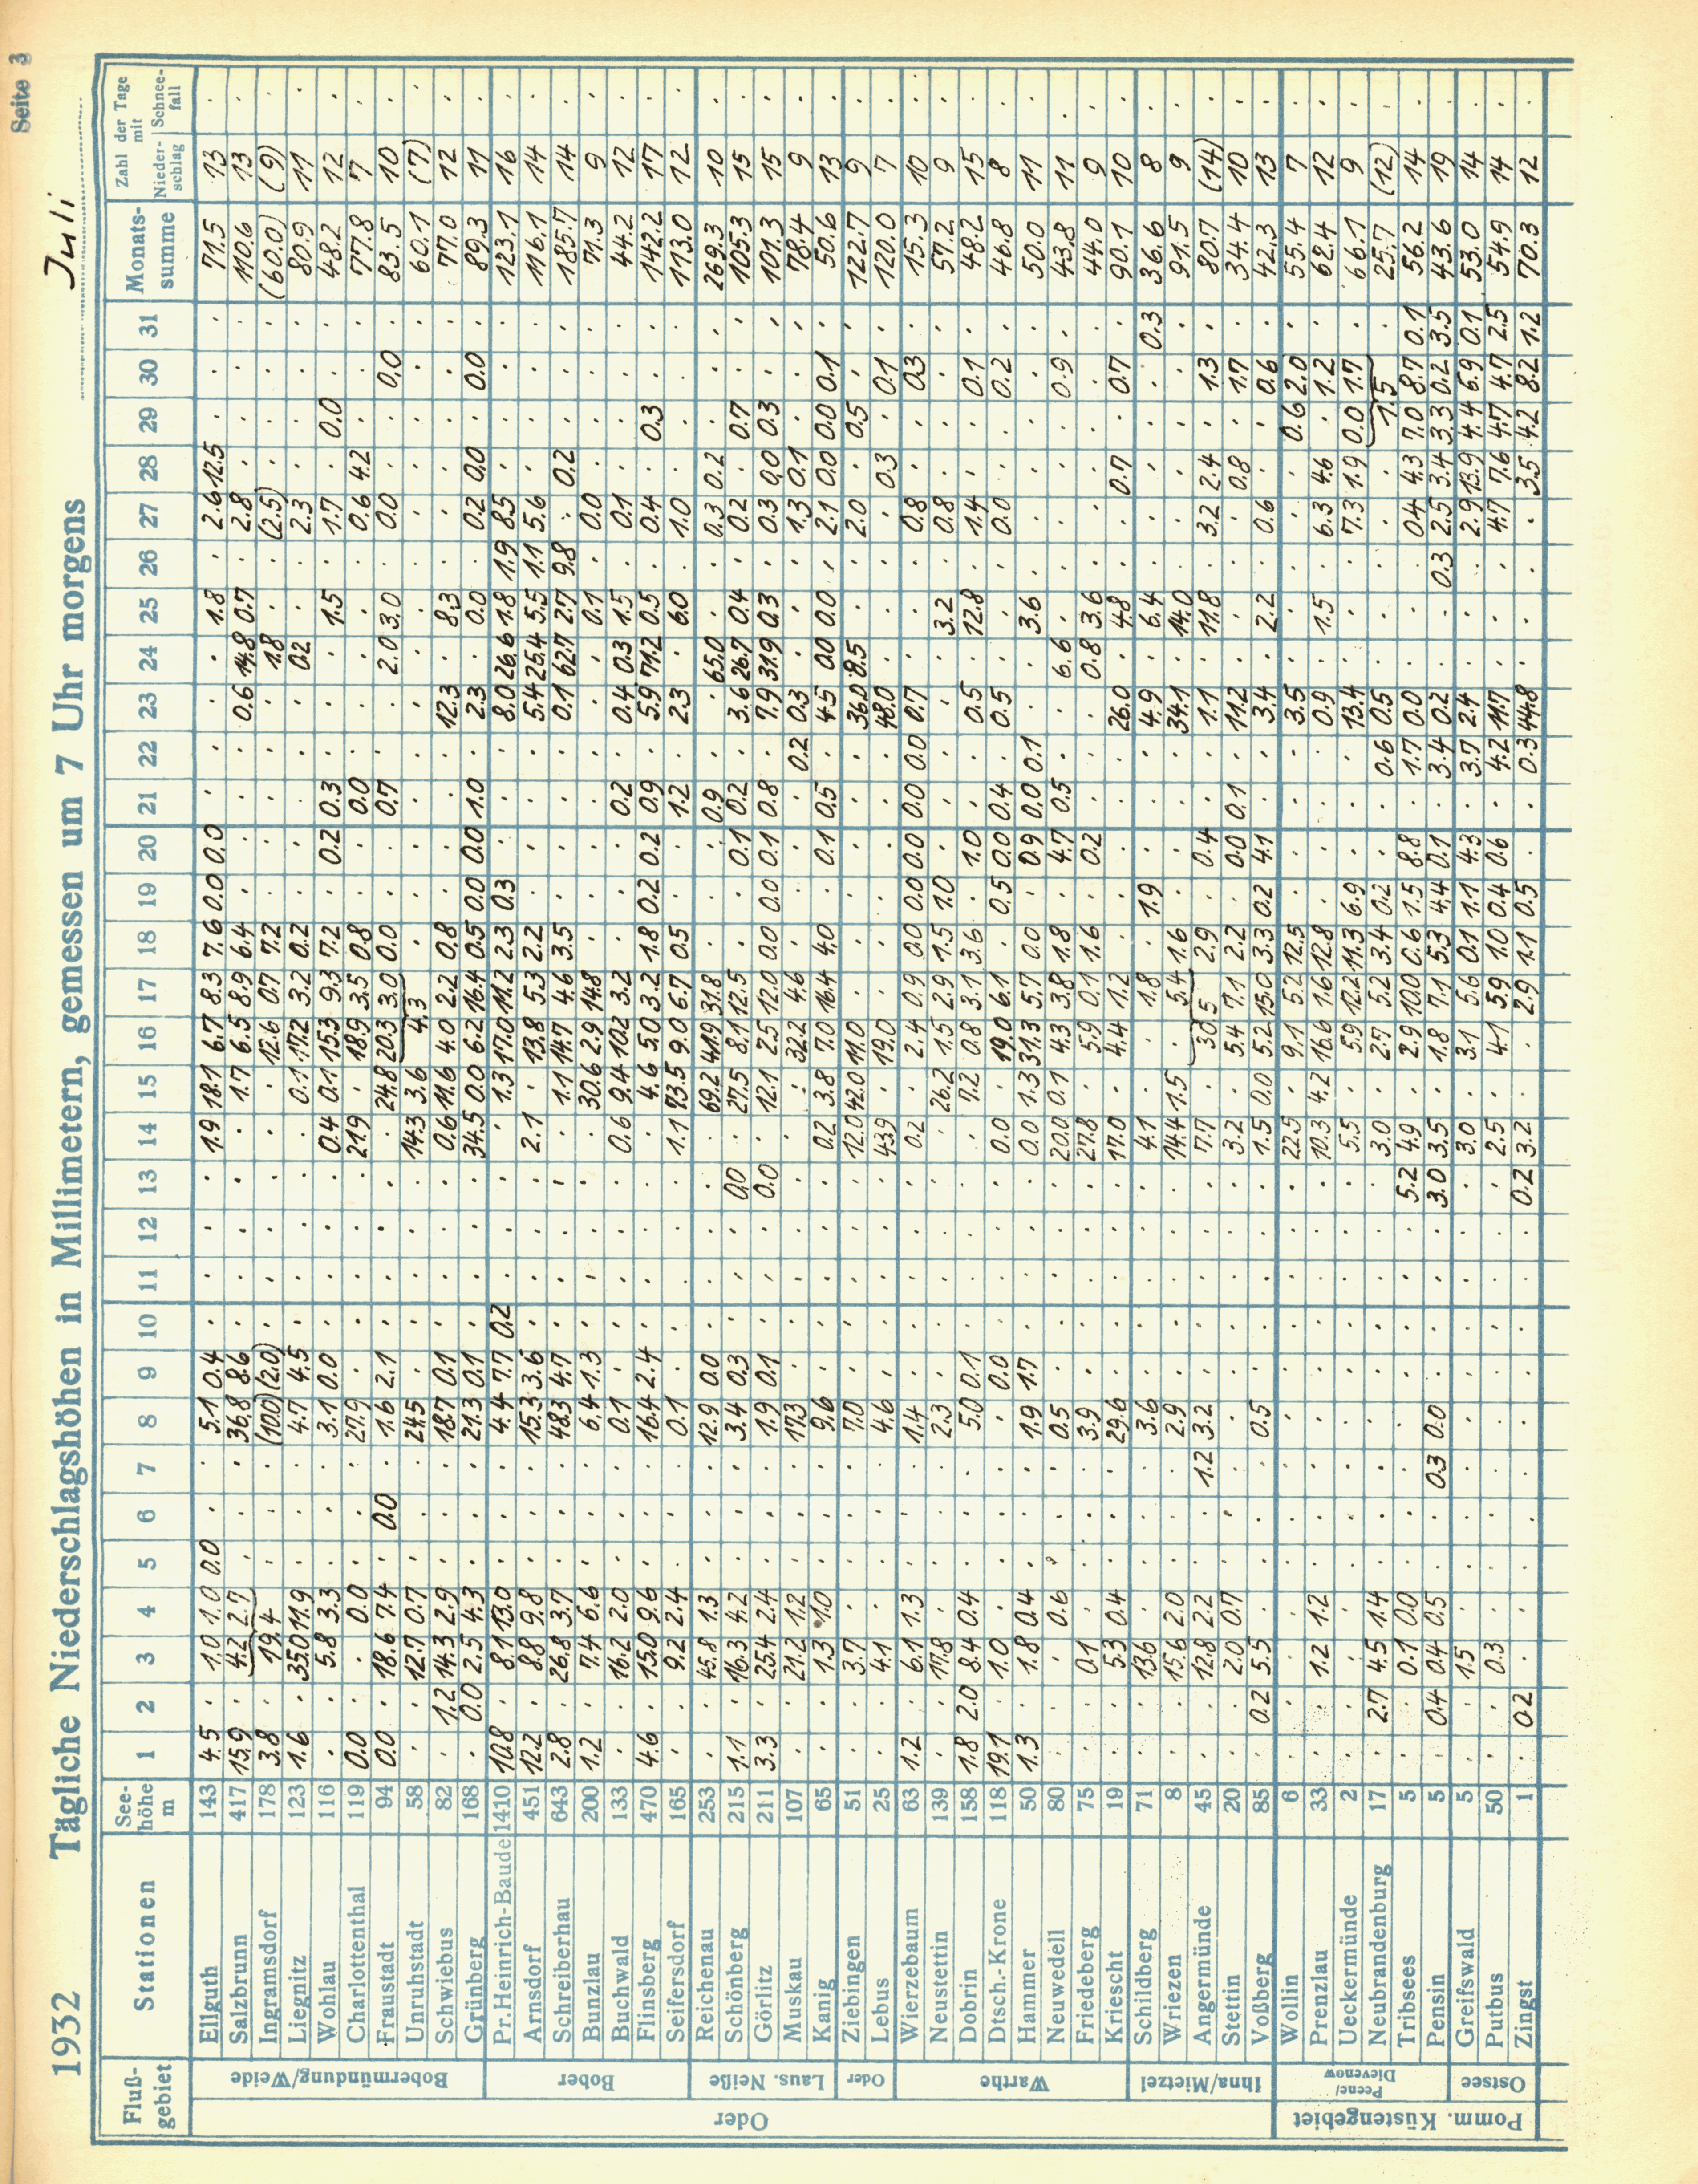 Seite 3
1932 Tägliche Niederschlagshöhen in Millimetern, gemessen um 7 Uhr morgens Juli
Fluß-gebiet Stationen See-höhe m 1 2 3 4 5 6 7 8 9 10 11 12 13 14 15 16 17 18 19 20 21 22 23 24 25 26 27 28 29 30 31 Monats-summe Zahl der Tage mit Nieder-schlag Schnee-fall
Oder
Bobermündung/Weide
Ellguth 143 4.5 . 1.0 1.0 0.0 . . 5.1 0.4 . . . . 1.9 18.1 6.7 8.3 7.6 0.0 0.0 . . . . 1.8 . 2.6 12.5 . . . 71.5 13 .
Salzbrunn 417 15.9 . 4.2 2.7 . . . 36.8 8.6 . . . . . 1.7 6.5 8.9 6.4 . . . . 0.6 14.8 0.7 . 2.8 . . . . 110.6 13 .
Ingramsdorf 178 3.8 . 19.4 . . . (10.0) (2.0) . . . . . . 12.6 0.7 7.2 . . . . . 1.8 . . (2.5) . . . . (60.0) (9) .
Liegnitz 123 1.6 . 35.0 11.9 . . . 4.7 4.5 . . . . . 0.1 17.2 3.2 0.2 . . . . . 0.2 . . 2.3 . . . . 80.9 11 .
Wohlau 116 . . 5.8 3.3 . . . 3.1 0.0 . . . . 0.4 0.1 15.3 9.3 7.2 . 0.2 0.3 . . . 1.5 . 1.7 . 0.0 . . 48.2 12 .
Charlottenthal 119 0.0 . . 0.0 . . . 27.9 . . . . . 21.9 . 18.9 3.5 0.8 . . 0.0 . . . . . 0.6 4.2 . . . 77.8 7 .
Fraustadt 94 0.0 . 18.6 7.4 . 0.0 . 1.6 2.1 . . . . . 24.8 20.3 3.0 0.0 . . 0.7 . . 2.0 3.0 . 0.0 . . 0.0 . 83.5 10 .
Unruhstadt 58 . . 12.7 0.7 . . . 24.5 . . . . . 14.3 3.6 4.3 . . . . . . . . . . . . . . 60.1 (7) .
Schwiebus 82 . 1.2 14.3 2.9 . . . 18.7 0.1 . . . . 0.6 11.6 4.0 2.2 0.8 . . . . 12.3 . 8.3 . . . . . . 77.0 12 .
Grünberg 168 . 0.0 2.5 4.3 . . . 21.3 0.1 . . . . 34.5 0.0 6.2 16.4 0.5 0.0 0.0 1.0 . 2.3 . 0.0 . 0.2 0.0 . 0.0 . 89.3 11 .
Bober
Pr.Heinrich-Baude 1410 10.8 . 8.1 13.0 . . . 4.4 7.7 0.2 . . . . 1.3 17.0 11.2 2.3 0.3 . . . 8.0 26.6 1.8 1.9 8.5 . . . . 123.1 16 .
Arnsdorf 451 12.2 . 8.8 9.8 . . . 15.3 3.6 . . . . 2.1 . 13.8 5.3 2.2 . . . . 5.4 25.4 5.5 1.1 5.6 . . . . 116.1 14 .
Schreiberhau 643 2.8 . 26.8 3.7 . . . 48.3 4.7 . . . . . 1.1 14.7 4.6 3.5 . . . . 0.1 62.7 2.7 9.8 . 0.2 . . . 185.7 14 .
Bunzlau 200 1.2 . 7.4 6.6 . . . 6.4 1.3 . . . . . 30.6 2.9 14.8 . . . . . . . 0.1 . 0.0 . . . . 71.3 9 .
Buchwald 133 . . 16.2 2.0 . . . 0.1 . . . . . 0.6 9.4 10.2 3.2 . . . 0.2 . 0.4 0.3 1.5 . 0.1 . . . . 44.2 12 .
Flinsberg 470 4.6 . 15.0 9.6 . . . 16.4 2.4 . . . . . 4.6 5.0 3.2 1.8 0.2 0.2 0.9 . 5.9 71.2 0.5 . 0.4 . 0.3 . . 142.2 17 .
Seifersdorf 165 . . 9.2 2.4 . . . 0.1 . . . . . 1.1 73.5 9.0 6.7 0.5 . . 1.2 . 2.3 . 6.0 . 1.0 . . . . 113.0 12 .
Laus. Neiße
Reichenau 253 . . 45.8 1.3 . . . 12.9 0.0 . . . . . 69.2 41.9 31.8 . . . 0.9 . . 65.0 . . 0.3 0.2 . . . 269.3 10 .
Schönberg 215 1.1 . 16.3 4.2 . . . 3.4 0.3 . . . 0.0 . 27.5 8.1 12.5 . . 0.1 0.2 . 3.6 26.7 0.4 . 0.2 . 0.7 . . 105.3 15 .
Görlitz 211 3.3 . 25.4 2.4 . . . 1.9 0.1 . . . 0.0 . 12.1 2.5 12.0 0.0 0.0 0.1 0.8 . 7.9 31.9 0.3 . 0.3 0.0 0.3 . . 101.3 15 .
Muskau 107 . . 21.2 1.2 . . . 17.3 . . . . . . . 32.2 4.6 . . . . 0.2 0.3 . . . 1.3 0.1 . . . 78.4 9 .
Kanig 65 . . 1.3 1.0 . . . 9.6 . . . . . 0.2 3.8 7.0 16.4 4.0 . 0.1 0.5 . 4.5 0.0 0.0 . 2.1 0.0 0.0 0.1 . 50.6 13 .
Oder
Ziebingen 51 . . 3.7 . . . . 7.0 . . . . . 12.0 42.0 11.0 . . . . . . 36.0 8.5 . . 2.0 . 0.5 . . 122.7 9 .
Lebus 25 . . 4.1 . . . . 4.6 . . . . . 43.9 . 19.0 . . . . . . 48.0 . . . . 0.3 . 0.1 . 120.0 7 .
Warthe
Wierzebaum 63 1.2 . 6.1 1.3 . . . 1.4 . . . . . 0.2 . 2.4 0.9 0.0 0.0 0.0 0.0 0.0 0.7 . . . 0.8 . . 0.3 . 15.3 10 .
Neustettin 139 . . 17.8 . . . . 2.3 . . . . . . 26.2 1.5 2.9 1.5 1.0 . . . . . 3.2 . 0.8 . . . . 57.2 9 .
Dobrin 158 1.8 2.0 8.4 0.4 . . . 5.0 0.1 . . . . . 7.2 0.8 3.1 3.6 . 1.0 . . 0.5 . 12.8 . 1.4 . . 0.1 . 48.2 15 .
Dtsch.-Krone 118 19.1 . 1.0 . . . . . 0.0 . . . . 0.0 . 19.0 6.1 . 0.5 0.0 0.4 . 0.5 . . . 0.0 . . 0.2 . 46.8 8 .
Hammer 50 1.3 . 1.8 0.4 . . . 1.9 1.7 . . . . 0.0 1.3 31.3 5.7 0.0 . 0.9 0.0 0.1 . . 3.6 . . . . . . 50.0 11 .
Neuwedell 80 . . . 0.6 . . . 0.5 . . . . . 20.0 0.1 4.3 3.8 1.8 . 4.7 0.5 . . 6.6 . . . . . 0.9 . 43.8 11 .
Friedeberg 75 . . 0.1 . . . . 3.9 . . . . . 27.8 . 5.9 0.1 1.6 . 0.2 . . . 0.8 3.6 . . . . . . 44.0 9 .
Kriescht 19 . . 5.3 0.4 . . . 29.6 . . . . . 17.0 . 4.4 1.2 . . . . . 26.0 . 4.8 . . 0.7 . 0.7 . 90.1 10 .
Ihna/Mietzel
Schildberg 71 . . 13.6 . . . . 3.6 . . . . . 4.1 . . 1.8 . 1.9 . . . 4.9 . 6.4 . . . . . 0.3 36.6 8 .
Wriezen 8 . . 15.6 2.0 . . . 2.9 . . . . . 14.4 1.5 . 5.4 1.6 . . . . 34.1 . 14.0 . . . . . . 91.5 9 .
Angermünde 45 . . 12.8 2.2 . . 1.2 3.2 . . . . . 7.7 . 30.5 2.9 . 0.4 . . 1.1 . 11.8 . 3.2 2.4 . 1.3 . 80.7 (14) .
Stettin 20 . . 2.0 0.7 . . . . . . . . . 3.2 . 5.4 7.1 2.2 . 0.0 0.1 . 11.2 . . . . 0.8 . 1.7 . 34.4 10 .
Voßberg 85 . 0.2 5.5 . . . . 0.5 . . . . . 1.5 0.0 5.2 15.0 3.3 0.2 4.1 . . 3.4 . 2.2 . 0.6 . . 0.6 . 42.3 13 .
Pomm. Küstengebiet
Peene/Dievenow
Wollin 6 . . . . . . . . . . . . . 22.5 . 9.1 5.2 12.5 . . . . 3.5 . . . . . 0.6 2.0 . 55.4 7 .
Prenzlau 33 . . 1.2 1.2 . . . . . . . . . 10.3 4.2 16.6 1.6 12.8 . . . . 0.9 . 1.5 . 6.3 4.6 . 1.2 . 62.4 12 .
Ueckermünde 2 . . . . . . . . . . . . . 5.5 . 5.9 12.2 11.3 6.9 . . . 13.4 . . . 7.3 1.9 0.0 1.7 . 66.1 9 .
Neubrandenburg 17 . 2.7 4.5 1.4 . . . . . . . . . 3.0 . 2.7 5.2 3.4 0.2 . . 0.6 0.5 . . . . . 1.5 . 25.7 (12) .
Tribsees 5 . . 0.1 0.0 . . . . . . . . 5.2 4.9 . 2.9 10.0 0.6 1.5 8.8 . 1.7 0.0 . . . 0.4 4.3 7.0 8.7 0.1 56.2 14 .
Pensin 5 . 0.4 0.4 0.5 . . 0.3 0.0 . . . . 3.0 3.5 . 1.8 7.1 5.3 4.4 0.1 . 3.4 0.2 . . 0.3 2.5 3.4 3.3 0.2 3.5 43.6 19 .
Ostsee
Greifswald 5 . . 1.5 . . . . . . . . . . 3.0 . 3.1 5.6 0.1 1.1 4.3 . 3.7 2.4 . . . 2.9 13.9 4.4 6.9 0.1 53.0 14 .
Putbus 50 . . 0.3 . . . . . . . . . . 2.5 . 4.1 5.9 1.0 0.4 0.6 . 4.2 11.7 . . . 4.7 7.6 4.7 4.7 2.5 54.9 14 .
Zingst 1 . 0.2 . . . . . . . . . . 0.2 3.2 . . 2.9 1.1 0.5 . . 0.3 44.8 . . . . 3.5 4.2 8.2 1.2 70.3 12 .